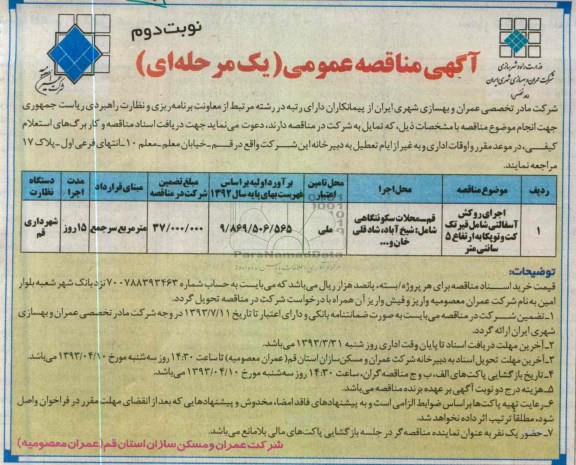 نوبت دوم
آگهی مناقصه عمومی (یک مرحله‌ای)
وزارت راه و شهرسازی
شرکت عمران و بهسازی شهری ایران
شرکت مادر تخصصی عمران و بهسازی شهری ایران از پیمانکاران دارای رتبه در رشته مرتبط از معاونت برنامه‌ریزی و نظارت راهبردی ریاست جمهوری
جهت انجام موضوع مناقصه با مشخصات ذیل، که تمایل به شرکت در مناقصه دارند، دعوت می‌نماید جهت دریافت اسناد مناقصه و کاربرگ‌های استعلام
کیفی، در موعد مقرر و اوقات اداری و به غیر از ایام تعطیل به دبیرخانه این شرکت واقع در قم-خیابان معلم-معلم ۱۰-انتهای فرعی اول-پلاک ۱۷
مراجعه نمایند.
ردیف موضوع مناقصه محل اجرا محل تامین اعتبار برآورد اولیه بر اساس فهرست بهای پایه سال ۱۳۹۲ مبلغ تضمین شرکت در مناقصه مبنای قرارداد مدت اجرا دستگاه نظارت
۱ اجرای روکش آسفالتی شامل قیر تک کت و توپکا به ارتفاع ۵ سانتی متر قم-محلات سکونتگاهی شامل: شیخ آباد، شادقلی خان و... ملی ۹/۸۶۹/۵۰۶/۵۶۵ ۳۷/۰۰۰/۰۰۰ مترمربع سرجمع ۱۵ روز شهرداری قم
ParsNamadData
توضیحات:
قیمت خرید اسناد مناقصه برای هر پروژه/بسته، پانصد هزار ریال می‌باشد که می‌بایست به حساب شماره ۷۰۰۷۸۸۳۹۳۴۶۳ نزد بانک شهر شعبه بلوار
امین به نام شرکت عمران معصومیه واریز و فیش واریز آن همراه با درخواست شرکت در مناقصه تحویل گردد.
۱-تضمین شرکت در مناقصه می‌بایست به صورت ضمانتنامه بانکی و دارای اعتبار تا تاریخ ۱۳۹۳/۷/۱۱ در وجه شرکت مادر تخصصی عمران و بهسازی
شهری ایران ارائه گردد.
۲-آخرین مهلت دریافت اسناد تا پایان وقت اداری روز شنبه ۱۳۹۳/۳/۳۱ می‌باشد.
۳-آخرین مهلت تحویل اسناد به دبیرخانه شرکت عمران و مسکن سازان استان قم (عمران معصومیه) تا ساعت ۱۴:۳۰ روز سه‌شنبه مورخ ۱۳۹۳/۰۴/۱۰ می‌باشد.
۴-تاریخ بازگشایی پاکت‌های الف، ب و ج مناقصه گران، ساعت ۱۴:۳۰ روز سه‌شنبه مورخ ۱۳۹۳/۰۴/۱۰ می‌باشد.
۵-هزینه درج دو نوبت آگهی بر عهده برنده مناقصه می‌باشد.
۶-رعایت تهیه پاکت‌ها بر اساس ضوابط الزامی است و به پیشنهادهای فاقد امضا، مخدوش و پیشنهادهایی که بعد از انقضای مهلت مقرر در فراخوان واصل
شود، مطلقا ترتیب اثر داده نخواهد شد.
۷-حضور یک نفر به عنوان نماینده مناقصه گر در جلسه بازگشایی پاکت‌های مالی بلامانع می‌باشد.
شرکت عمران و مسکن سازان استان قم (عمران معصومیه)